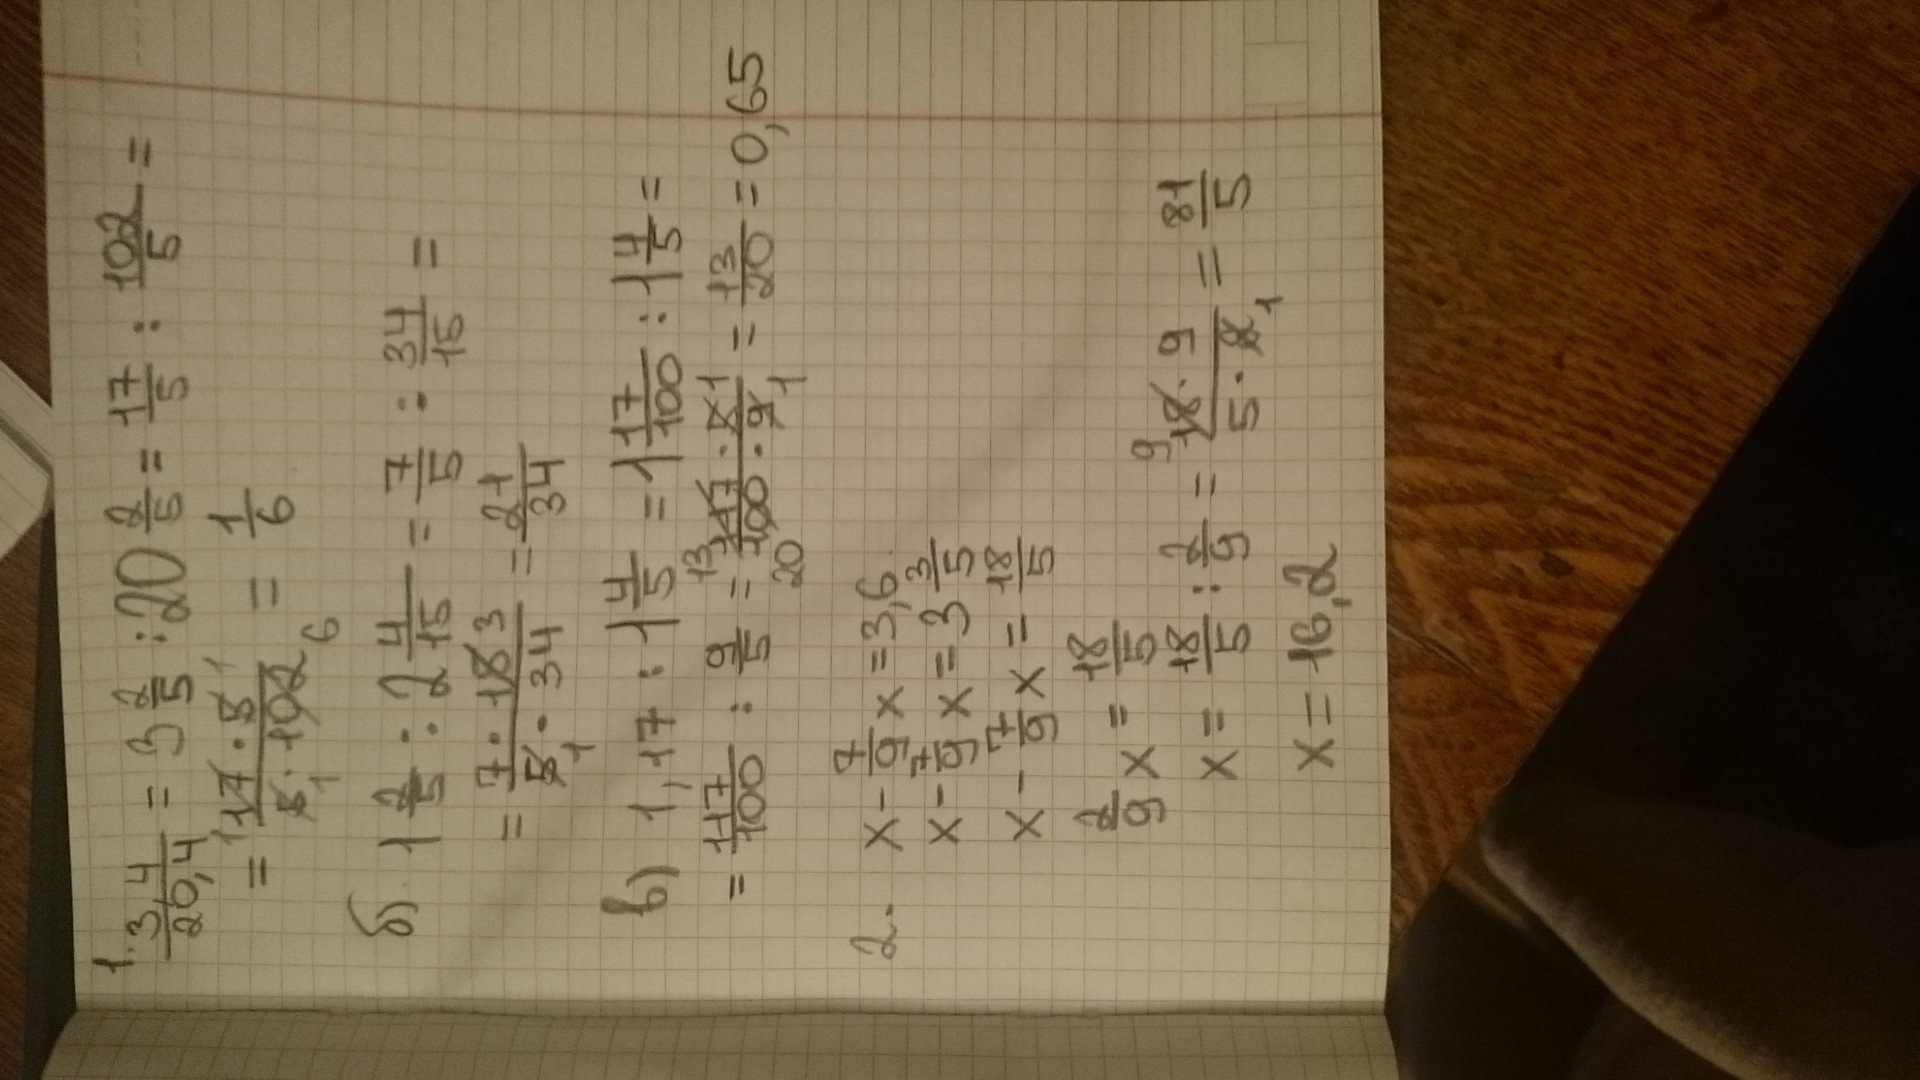 1. 3,4/20,4 = 3 2/5 : 20 2/5 = 17/5 : 102/5 =
= 17 · 5/5 · 102 = 1/6
б) 1 2/5 : 2 4/15 = 7/5 : 34/15 =
= 7 · 15/5 · 34 = 21/34
в) 1,17 : 1 4/5 = 1 17/100 : 1 4/5 =
= 117/100 : 9/5 = 117 · 5/100 · 9 = 13/20 = 0,65
2. x - 7/9 x = 3,6
x - 7/9 x = 3 3/5
x - 7/9 x = 18/5
2/9 x = 18/5
x = 18/5 : 2/9 = 18 · 9/5 · 2 = 81/5
x = 16,2